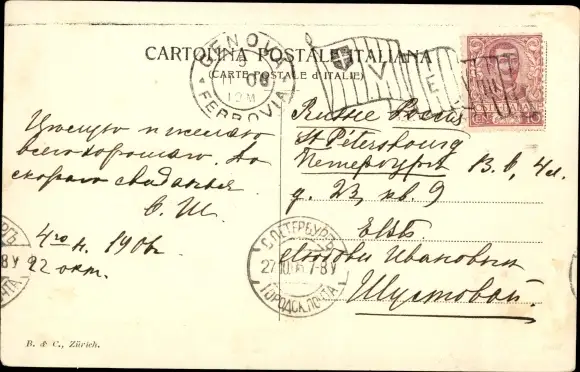 CARTOLINA POSTALE ITALIANA
(CARTE POSTALE d'ITALIE)
GENOVA
FERROVIA
Целую и желаю
всего хорошаго. До
скораго свиданья.
С. Ш.
4го н. 1906г.
22 окт.
Russie Россія
St Pétersbourg
Петербургъ В. О., 4 л.
д. 23, кв. 9
ЕВБ
Любови Ивановны
Шустовой.
С.ПЕТЕРБУРГЪ
27.10.06.7-8У
ГОРОДСК.ПОЧТА
B. & C., Zürich.